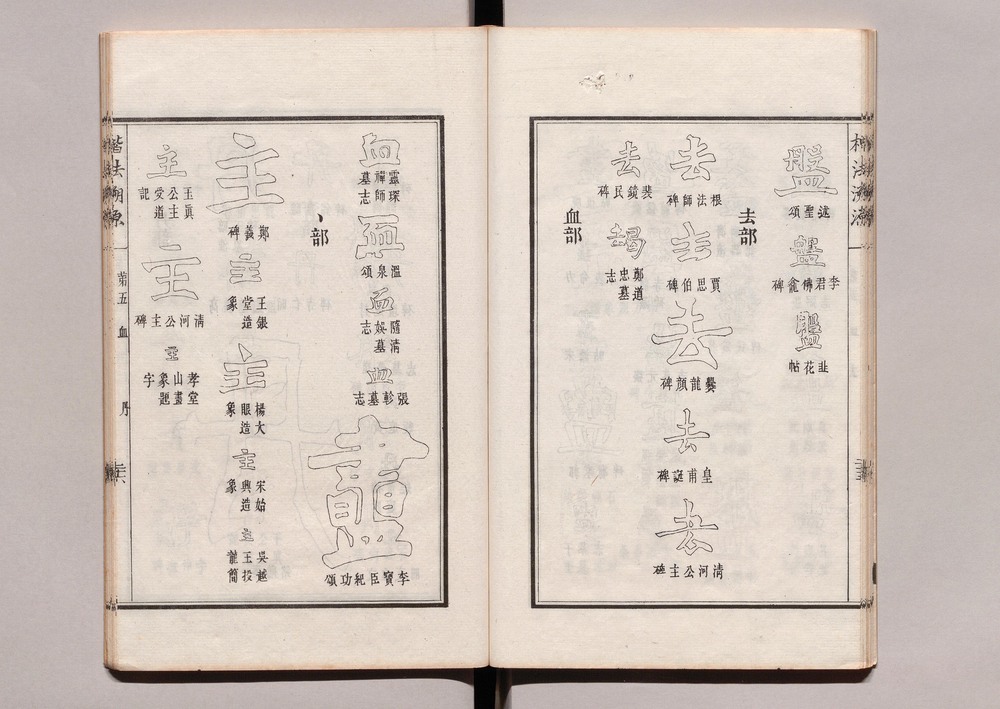 楷法溯源
盤
述聖頌
盤
盤
韭花帖
去部
去
根法師碑
去
賈思伯碑
去
爨龍顏碑
去
皇甫誕碑
去
清河公主碑
去
裴鏡民碑
朅
鄭道忠墓志
血部
血
靈琛禪師墓志
衃
溫泉頌
血
隨清娛墓志
血
張軫墓志
衋
李寶臣紀功頌
丶部
主
鄭羲碑
主
王銀堂造象
主
楊大眼造象
主
宋始興造象
主
吳越王投龍簡
主
玉眞公主受道記
主
清河公主碑
主
孝堂山畫象題字
楷法溯源
第五
血